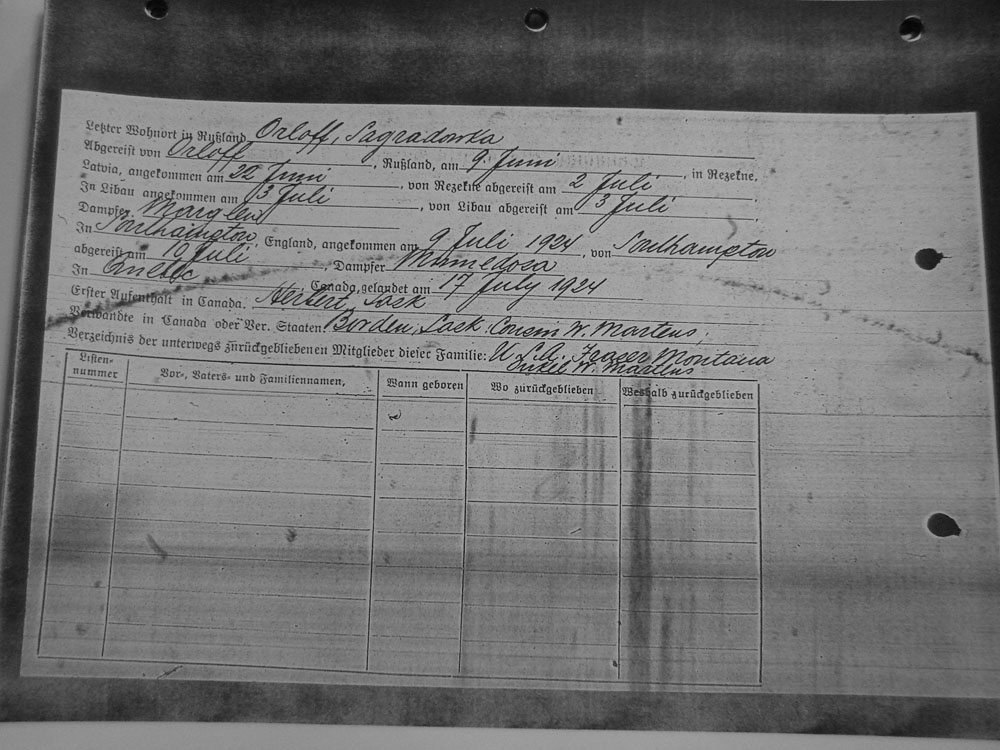 Letzter Wohnort in Rußland Orloff, Sagradowka
Abgereist von Orloff, Rußland, am 9. Juni, in Rezekne,
Latvia, angekommen am 22 Juni, von Rezekne abgereist am 2 Juli
In Libau angekommen am 3 Juli, von Libau abgereist am 3 Juli
Dampfer Marglen
In Southampton, England, angekommen am 9 Juli 1924, von Southampton
abgereist am 10 Juli, Dampfer Minnedosa
In Quebec Canada, gelandet am 17 July 1924
Erster Aufenthalt in Canada. Herbert, Sask
Verwandte in Canada oder Ver. Staaten Borden, Sask: Cousin W. Martens,
Verzeichnis der unterwegs zurückgebliebenen Mitglieder dieser Familie: U.S.A. Frazer Montana
Onkel W. Martens
Listen-nummer Vor-, Vaters- und Familiennamen, Wann geboren Wo zurückgeblieben Weshalb zurückgeblieben